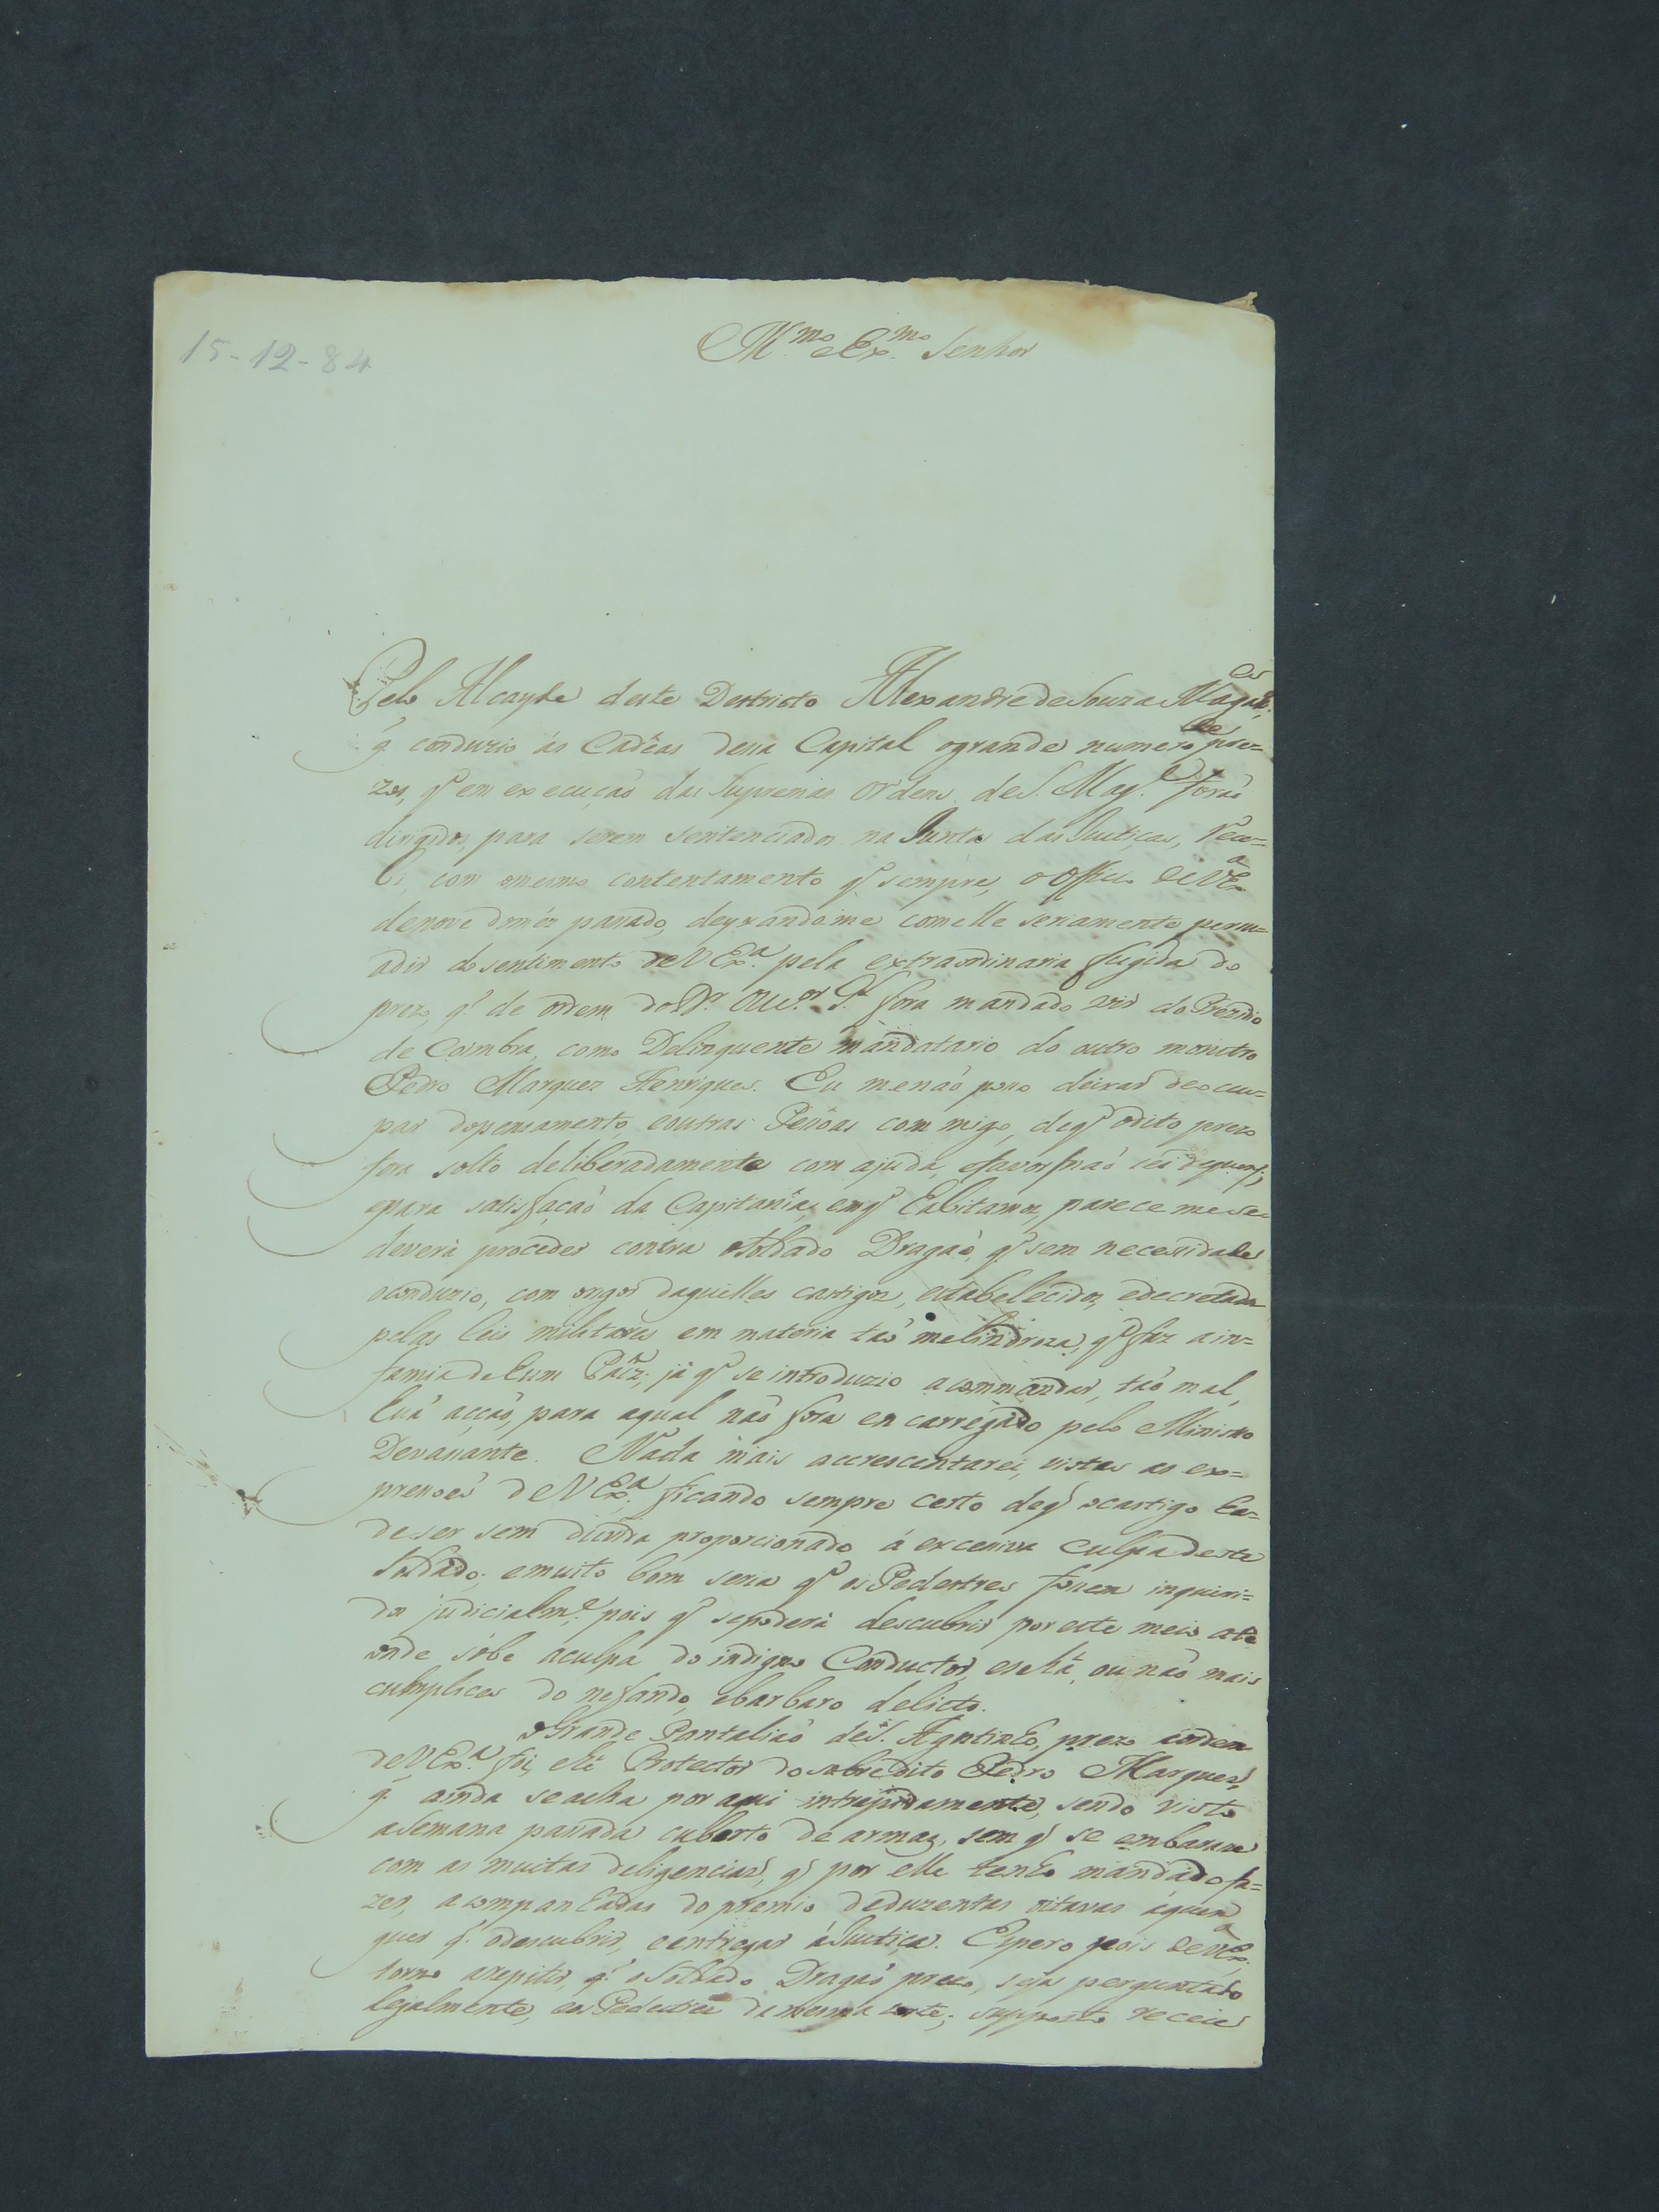 15-12-84
Ill.mo e Ex.mo Senhor
Pelo Alcayde deste Destricto Alexandre de Souza Magal.es
q̃ conduzio ás Cadêas dessa Capital ogrande numero de pre=
zos, q̃ em execuçaõ das Supremas Ordens de S. Mag.e foraõ
dirigidos, para serem sentenciados na Junta das Justiças, rece=
bi, com omesmo contentamento q̃ sempre, o Officio de V Ex.a
denove domêz passado, deyxandome comelle seriamente persu=
adir do sentimento de V Ex.a pela extraordinaria fugida do
prezo, q̃ de ordem do D.r Ouv.or fora mandado vir do Prezidio
de Coimbra, como Delinquente mandatario do outro monstro
Pedro Marquez Henriques. Eu menaõ posso deixar de occu=
par dopensamento, eoutras Pessoas com migo, deq̃ odito prezo
fora solto deliberadamente com ajuda, efavor naõ sei dequem,
epara satisfaçaõ da Capitania, emq̃ habitamos, parece mese
deverá proceder contra oSoldado Dragaõ, q̃ sem necessidade
oconduzio, com origor daquelles castigos, estabelecidos, edecretados
pelas leis militares em materia taõ melindroza, q̃ fáz a in=
famia de hum Paiz; já q̃ se introduzio acommandar, taõ mal,
huã acçaõ, para aqual naõ fora en carregado pelo Ministro
Devassante. Nada mais accrescentarei, vistas as ex=
pressoẽs de V Ex.a ficando sempre certo deq̃ ocastigo ha=
de ser sem duvida proporcionado á excessiva culpa deste
Soldado; emuito bom seria q̃ os Pedestres fossem inqueri=
dos judicialm.e pois q̃ sepoderá descubrir por este meio até
onde sóbe aculpa do indigno Conductor, eseha, ou naõ mais
cumplices do nefando, ebarbaro delicto.
oGrande Pantaliaõ de S. Agostinho, prezo aordem
de V Ex.a foi, e hé Protector do sobredito Pedro Marquez,
q̃ ainda seacha por aqui intrepidamente, sendo visto
aSemana passada cuberto de armas, sem q̃ se embarasse
com as muitas deligencias, q̃ por elle tenho mandado fa=
zer, acompanhadas do premio deduzentas oitavas áquem
quer q̃ odescubrir, eentregar áJustiça. Espero pois de V Ex.a
torno arepitir, q̃ oSoldado Dragaõ prezo, seja perguntado
legalmente, eos Pedestres da mesma sorte; supposto receie